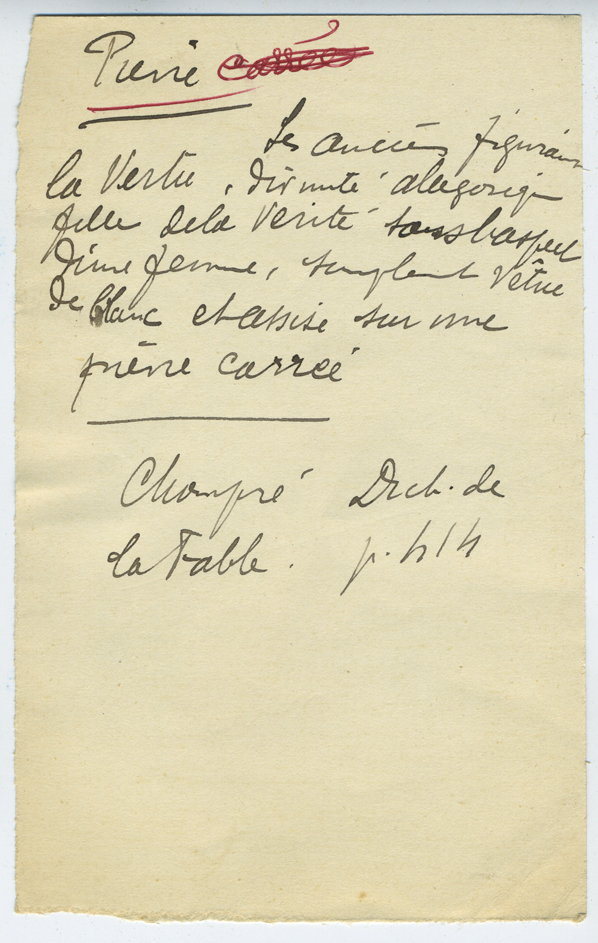 Pierre carrée
Les anciens figuraient
la Vertu, divinité allegoriq
fille de la Vérité sous l'aspect
d'une femme, simplement vêtue
de blanc et assise sur une
pierre carreé
Chompré Dict. de
la Fable. p. 414